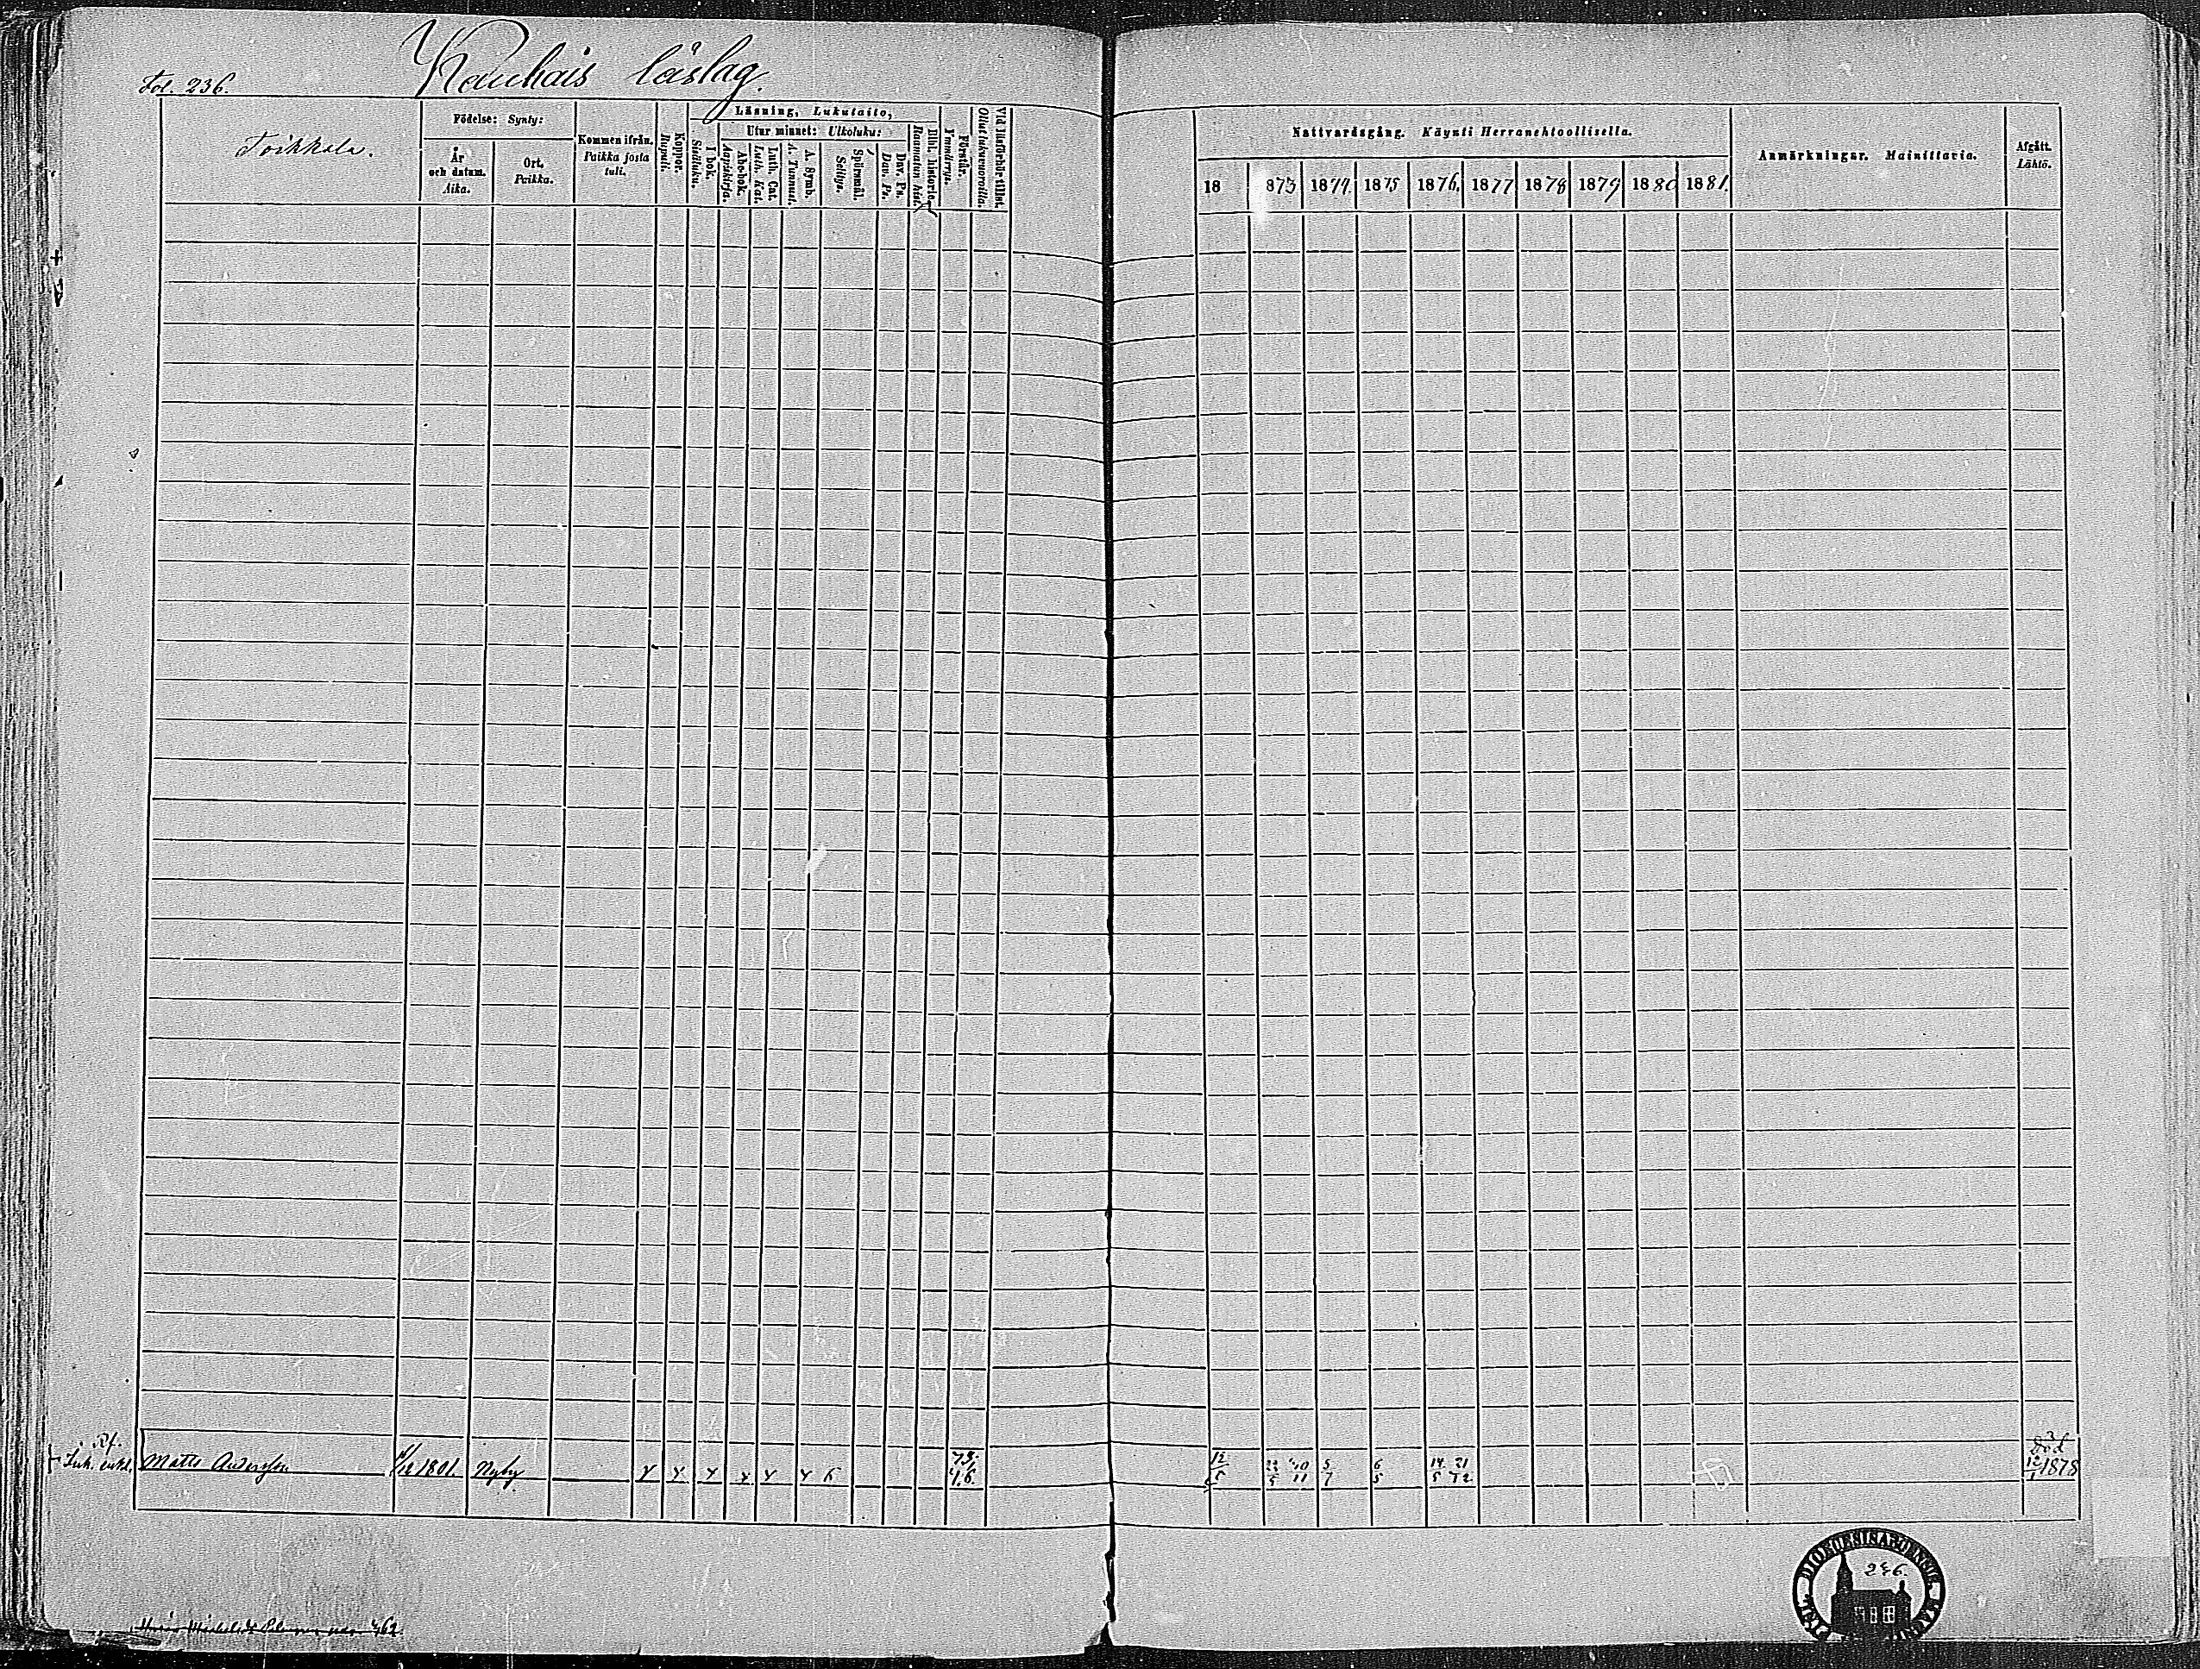 Fol. 236.
Kauhais läslag.
Toikkala.
Födelse: Synty:
År och datum. Aika.
Ort. Paikka.
Kommen ifrån. Paikka josta tuli.
Koppor. Rupuli.
Läsning, Lukutaito,
I bok. Sisäluku.
Utur minnet: Ulkoluku:
Abc-bok. Aapiskirja.
Luth. Cat. Luth. Kat.
A. Symb. A. Tunnust.
Spörsmål. Selitys.
Dav. Ps. Dav. Ps.
Bibl. historie. Raamatun hist.
Förstår. Ymmärrys.
Vid läsförhör tillst. Ollut lukuvuoroilla.
Nattvardsgång. Käynti Herranehtoollisella.
18 873 1874 1875 1876, 1877 1878 1879 1880 1881.
Anmärkningar. Mainittavia.
Afgått. Lähtö.
Rf.
Ink. enkl. Matts Andersson 1801. Nyby
73.
46.
12/5 22/5 40/11 5/7 6/5 14/5 21/12
Död 12/1 1878
DIOECESIS ABOENSIS
246.